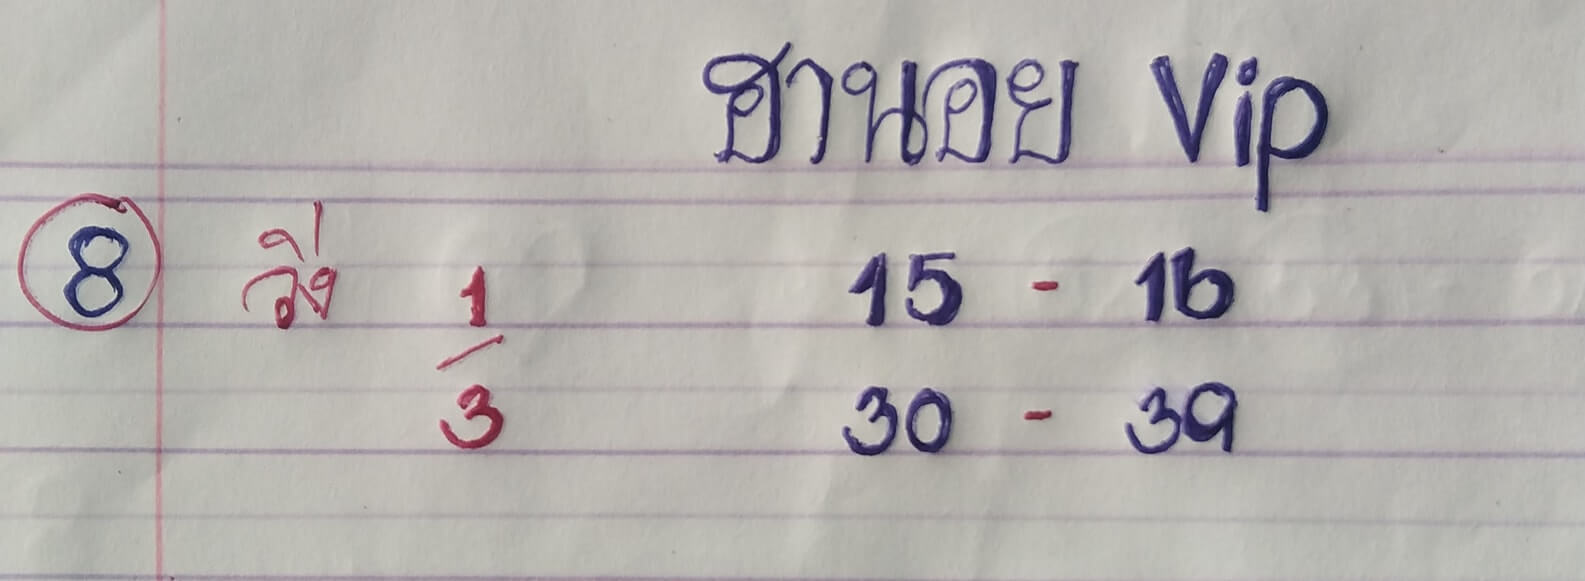 ฮานอย Vip
8 วิ่ง 1 15 - 16
/
3 30 - 39